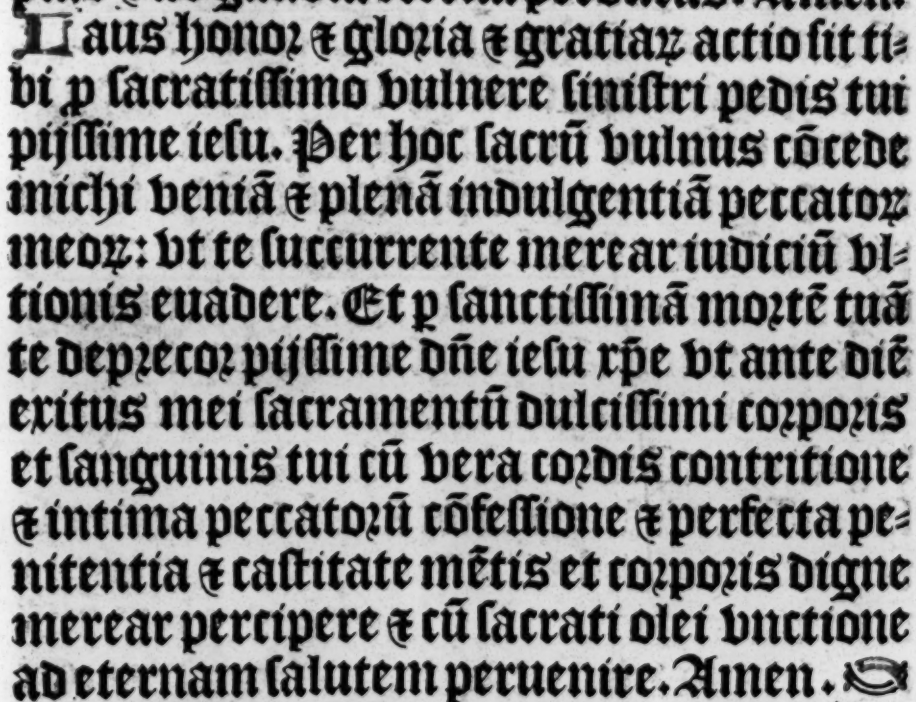 Laus honoꝛ ⁊ gloꝛia ⁊ gratiaꝝ actio ſit ti⸗
bi ꝑ ſacratiſſimo vulnere ſiniſtri pedis tui
pijſſime ieſu. Per hoc ſacrū vulnus cōcede
michi veniā ⁊ plenā indulgentiā peccatoꝝ
meoꝝ: vt te ſuccurrente merear iudiciū vl⸗
tionis euadere. Et ꝑ ſanctiſſimā moꝛtē tuā
te depꝛecoꝛ pijſſime dn̄e ieſu xp̄e vt ante diē
exitus mei ſacramentū dulciſſimi coꝛpoꝛis
et ſanguinis tui cū vera coꝛdis contritione
⁊ intima peccatoꝛū cōfeſſione ⁊ perfecta pe⸗
nitentia ⁊ caſtitate mētis et coꝛpoꝛis digne
merear percipere ⁊ cū ſacrati olei vnctione
ad eternam ſalutem peruenire. Amen.